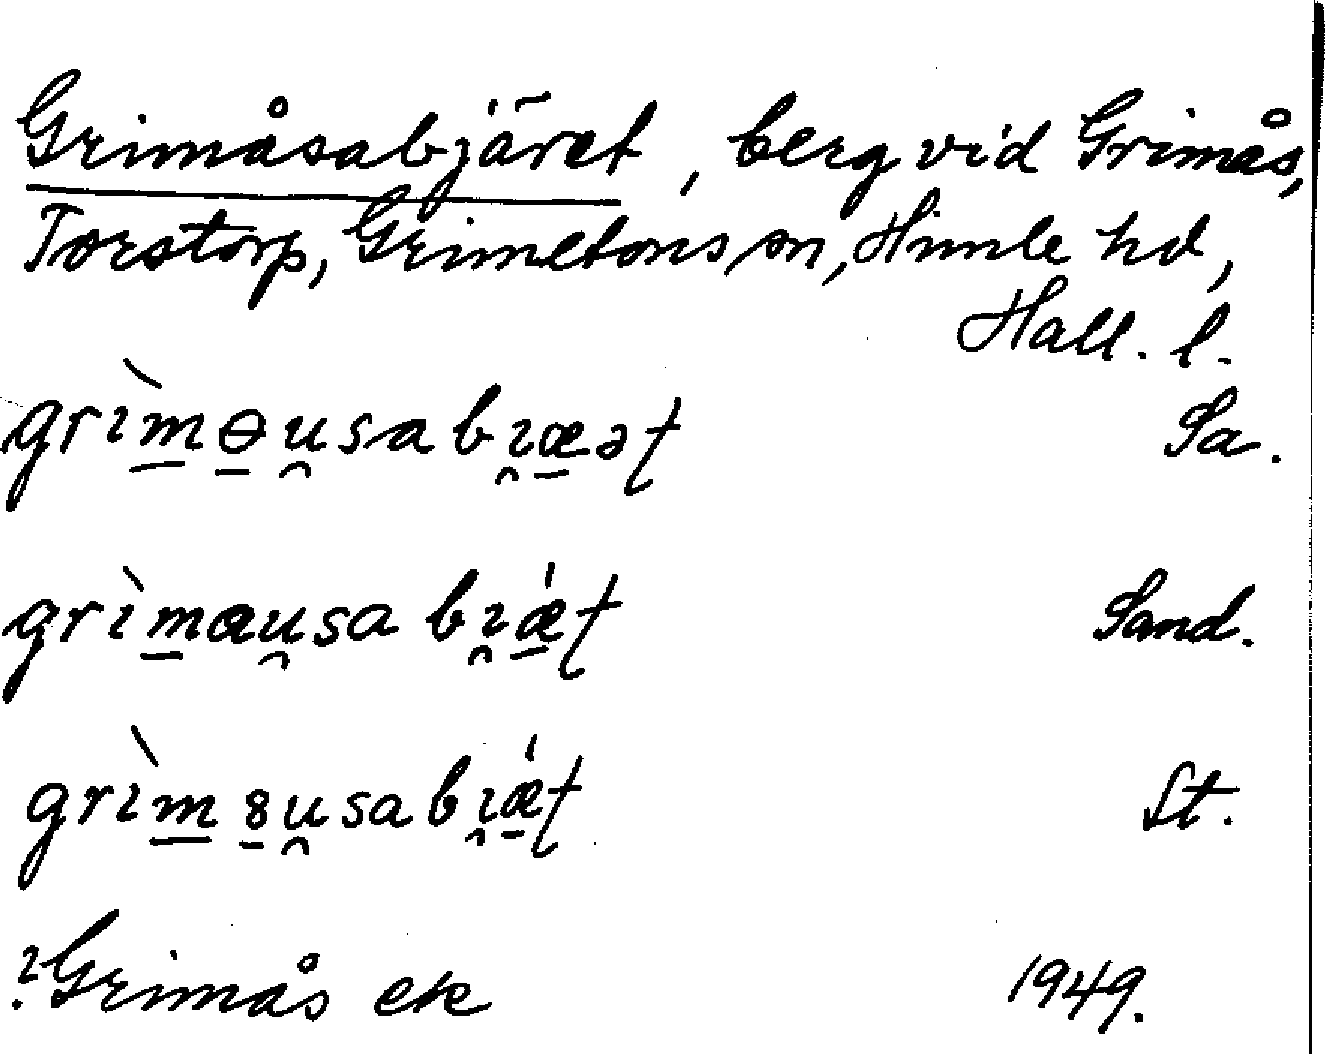 Grimåsabjäret, berg vid Grimås,
Torstorp, Grimetons sn, Himle hd,
Hall. l.
grìmɵu̯sabı̯æət Sa.
grìmɑu̯sabı̯ǽt Sand.
grìm8u̯sabı̯ǽt St.
?Grimås ek 1949.